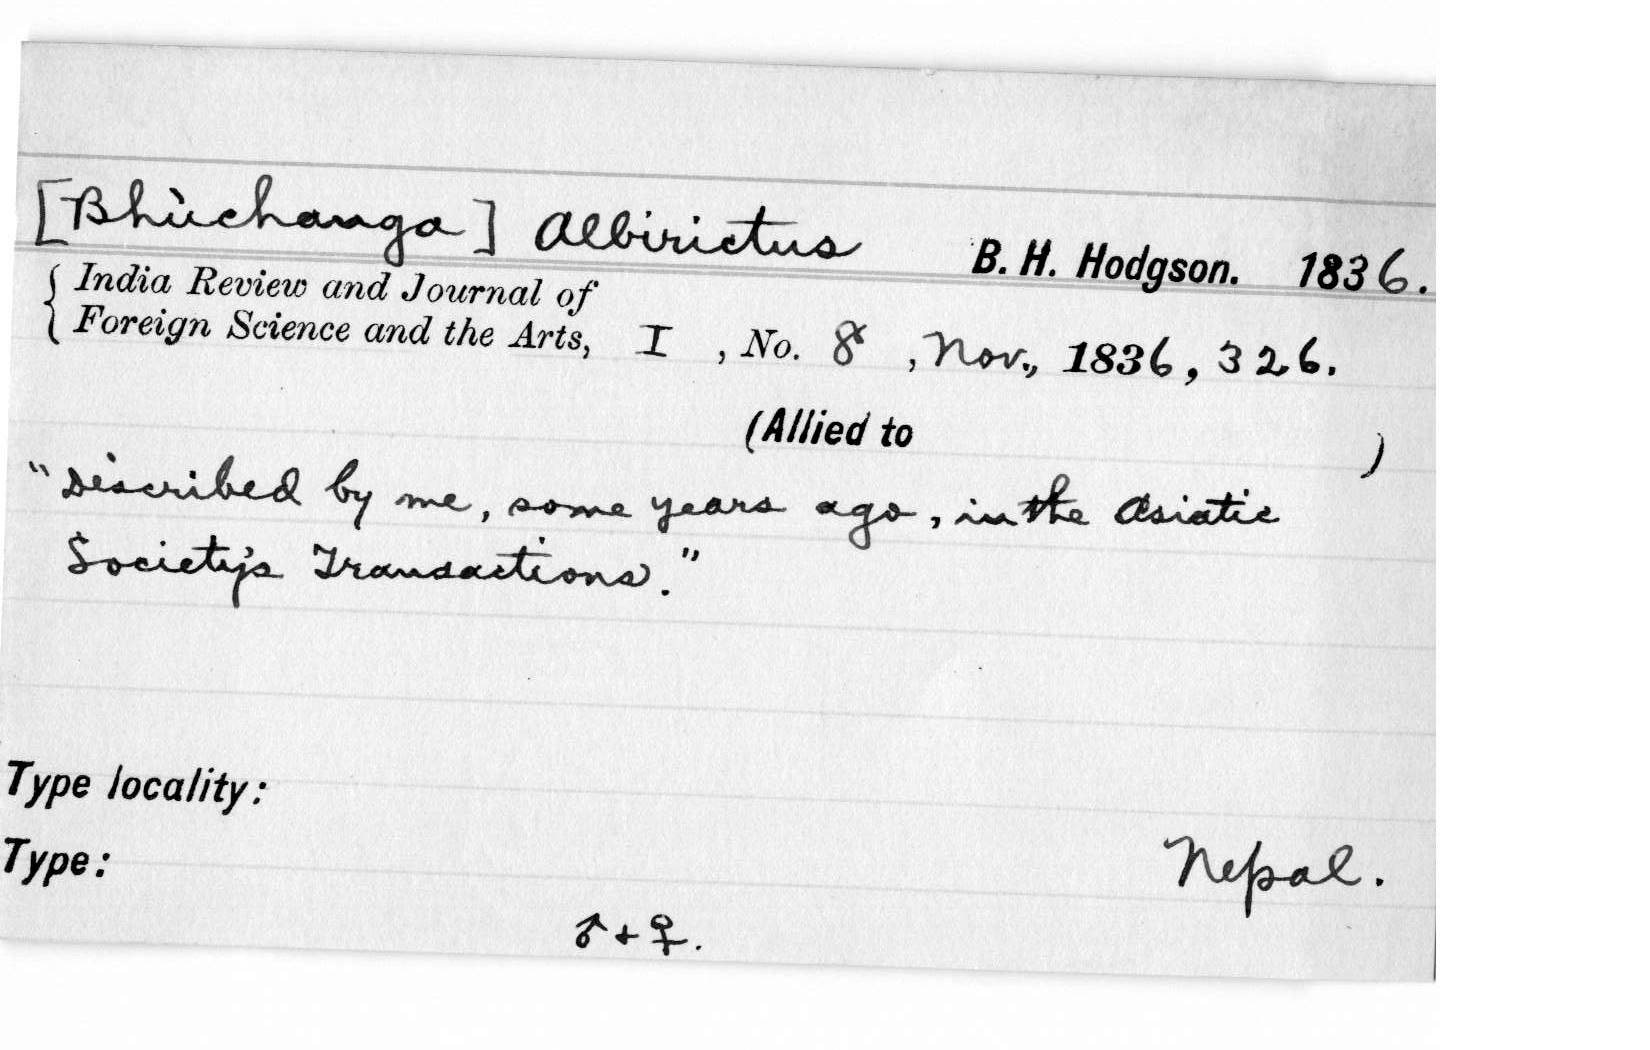 [Bhùchanga] Albirictus B. H. Hodgson. 1836.
{ India Review and Journal of
Foreign Science and the Arts, I , No. 8 , Nov., 1836, 326.
(Allied to )
"Described by me, some years ago, in the Asiatic
Society's Transactions."
Type locality:
Nepal.
Type:
♂ + ♀.